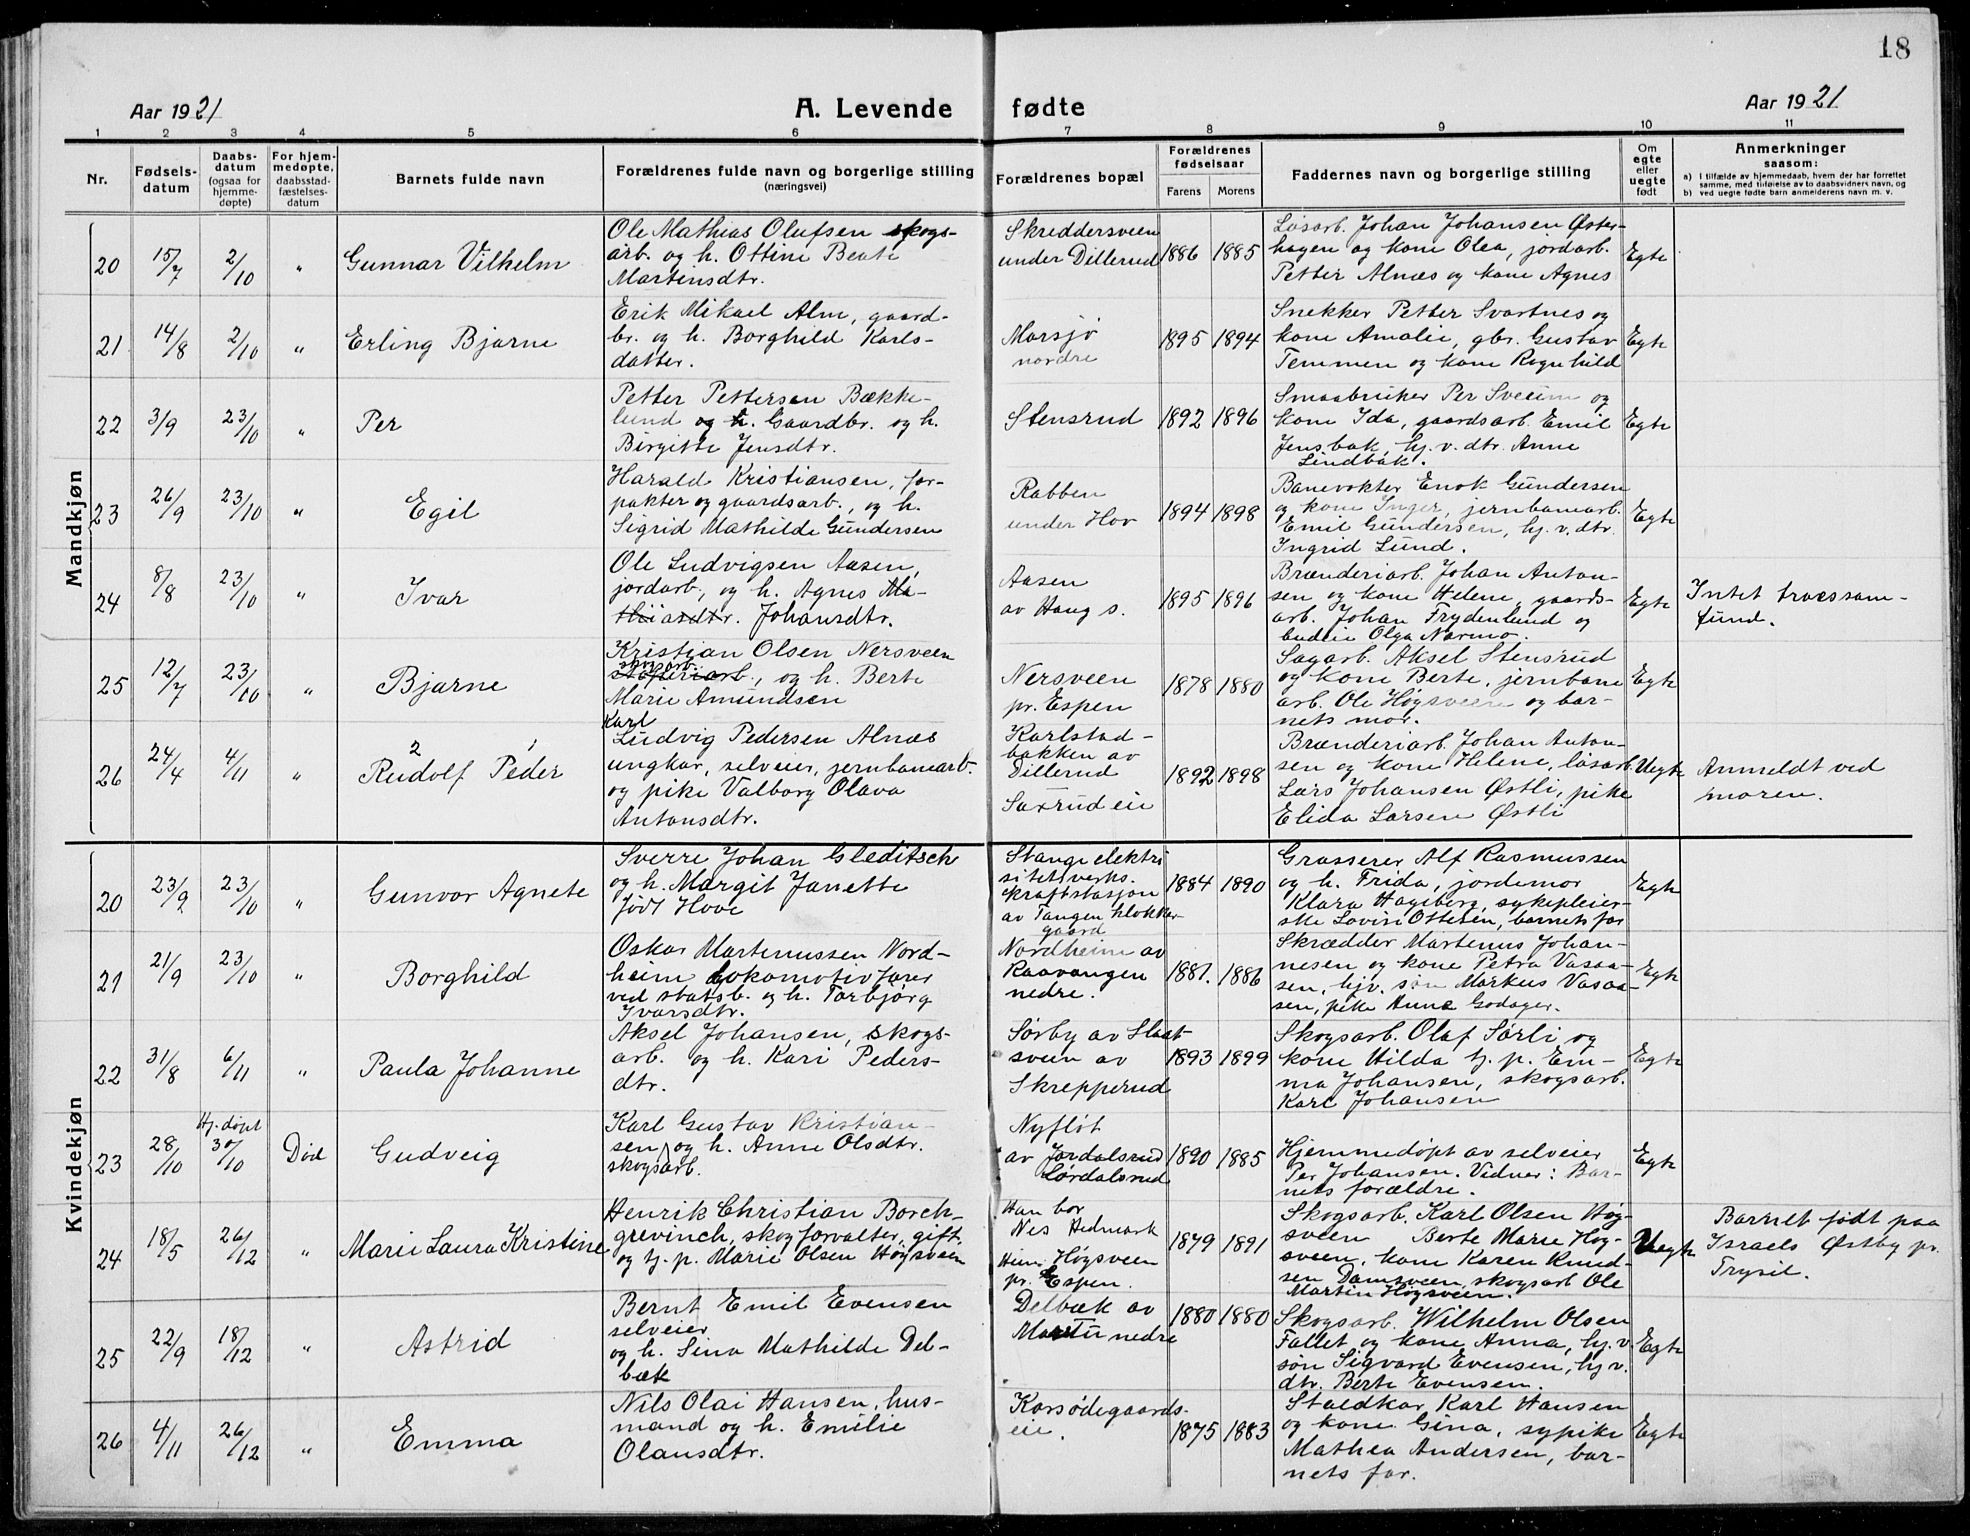 18
Aar 1921
A. Levende fødte
Aar 1921
1 2 3 4 5 6 7 8 9 10 11
Nr.
Fødsels-
datum
Daabs-
datum
(ogsaa for
hjemme-
døpte)
For hjem-
medøpte,
daabsstad-
fæstelses-
datum
Barnets fulde navn
Forældrenes fulde navn og borgerlige stilling
(næringsvei)
Forældrenes bopæl
Forældrenes
fødselsaar
Farens Morens
Faddernes navn og borgerlige stilling
Om
egte
eller
uegte
født
Anmerkninger
saasom:
a) I tilfælde av hjemmedaab, hvem der har forrettet
samme, med tilføielse av to daabsvidners navn, og
b) ved uegte fødte barn anmelderens navn m. v.
Mandkjøn
20 15/7 2/10 " Gunnar Vilhelm
Ole Mathias Olufsen skogs-
arb. og h. Ottine Beate
Martinsdtr.
Skreddersveen
under Dillerud
1886 1885
Løsarb. Johan Johansen Øster-
hagen og kone Olea, jordarb.
Petter Alnæs og kone Agnes
Egte
21 14/8 2/10 " Erling Bjarne
Erik Mikael Alm, gaard-
br. og h. Borghild Karls-
datter.
Morsjø
nordre
1895 1894
Snekker Petter Svartnes og
kone Amalie, gbr. Gustav
Temmen og kone Ragnhild
Egte
22 3/9 23/10 " Per
Petter Pettersen Bække-
lund og h. Gaardbr. og h.
Birgitte Jensdtr.
Stensrud
1892 1896
Smaabruker Per Sveum og
kone Ida, gaardsarb. Emil
Jensbak, hj. v. dtr. Anne
Lindbak.
Egte
23 26/9 23/10 " Egil
Harald Kristiansen, for-
pakter og gaardsarb., og h.
Sigrid Mathilde Gundersen
Rabben
under Hov
1894 1898
Banevokter Enok Gundersen
og kone Inger, jernbanearb.
Emil Gundersen, hj. v. dtr.
Ingrid Lund.
Egte
24 8/8 23/10 " Ivar
Ole Ludvigsen Aasen,
jordarb., og h. Agnes Ma-
thiasdtr. Johansdtr.
Aasen
av Haug s.
1895 1896
Brænderiarb. Johan Anton-
sen og kone Helene, gaards-
arb. Johan Frydenlund og
budeie Olga Narmo.
Egte
Intet troessam-
fund.
25 12/7 23/10 " Bjarne
Kristian Olsen Nersveen
skogsarb.
, og h. Berte
Marie Amundsen
Nersveen
pr. Espen
1878 1880
Sagarb. Aksel Stensrud
og kone Berte, jernbane
arb. Ole Høgsveen og bar-
nets mor.
Egte
26 24/4 4/11 " 2 1
Rudolf Peder
Karl
Ludvig Pedersen Alnæs
ungkar, selveier, jernbanearb.
og pike Valborg Olava
Antonsdtr.
Karlstad-
bakken av
Dillerud
Saxrud eie
1892 1898
Brænderiarb. Johan Anton-
sen og kone Helene, løsarb.
Lars Johansen Østli, pike
Elida Larsen Østli
Uegte
Anmeldt ved
moren.
Kvindekjøn
20 23/9 23/10 " Gunvor Agnete
Sverre Johan Gleditsch
og h. Margit Janette
født Hove
Stange elektri
sitetsverks.
kraftstasjon
av Tangen klokker-
gaard
1884 1890
Grosserer Alf Rasmussen
og h. Frida, jordemor
Klara Hageberg, sykepleier-
ske Lovise Ottesen, barnets far
Egte
21 21/9 23/10 " Borghild
Oskar Martinussen Nord-
heim Lokomotivfører
ved statsb. og h. Torbjørg
Ivarsdtr.
Nordheim av
Raavangen
nedre.
1881. 1886
Skrædder Martinus Johan-
nesen og kone Petra Vasaa-
sen, hjv. søn Markus Vasaa-
sen, pike Anne Godager.
Egte
22 31/8 6/11 " Paula Johanne
Aksel Johansen, skogs-
arb. og h. Kari Peders-
dtr.
Sørby av Slaat
sveen av
Skrepperud
1893 1899
Skogsarb. Olaf Sørli og
kone Hilda tj. p. Em-
ma Johansen, skogsarb.
Karl Johansen
Egte
23 28/10 Hj. døpt
30/10 Død Gudveig
Karl Gustav Kristian-
sen og h. Anne Olsdtr.
skogsarb.
Nyfløt
av Jordalsrud
Lørdalsrud
1890 1885
Hjemmedøpt av selveier
Per Johansen. Vidner: Bar-
nets forældre.
Egte
24 18/5 26/12 " Marie Laura Kristine
Henrik Christian Borch-
grevinch, skogforvalter, gift,
og tj. p. Marie Olsen Høgsveen
Han bor
Nes Hedmark
Hun: Høgsveen
pr. Espen.
1879 1891
Skogsarb. Karl Olsen Høg-
sveen Berte Marie Høg-
sveen, kone Karen Knud-
sen Damsveen, skogsarb Ole
Martin Høgsveen.
Uegte
Barnet født paa
Israels Østby pr.
Trysil.
25 22/9 18/12 " Astrid
Bernt Emil Evensen
selveier
og h. Lina Mathilde Del-
bæk
Delbæk av
nedre
1880 1880
Skogsarb. Wilhelm Olsen
Fallet og kone Anna, hj. v.
søn Sigvard Evensen, hj v.
dtr. Berte Evensen.
Egte
26 4/11 26/12 " Emma
Nils Olai Hansen, hus-
mand og h. Emilie
Olausdtr.
Korsødegaards-
eie.
1875 1883
Staldkar Karl Hansen
og kone Gina, sypike
Mathea Andersen, bar-
nets far.
Egte